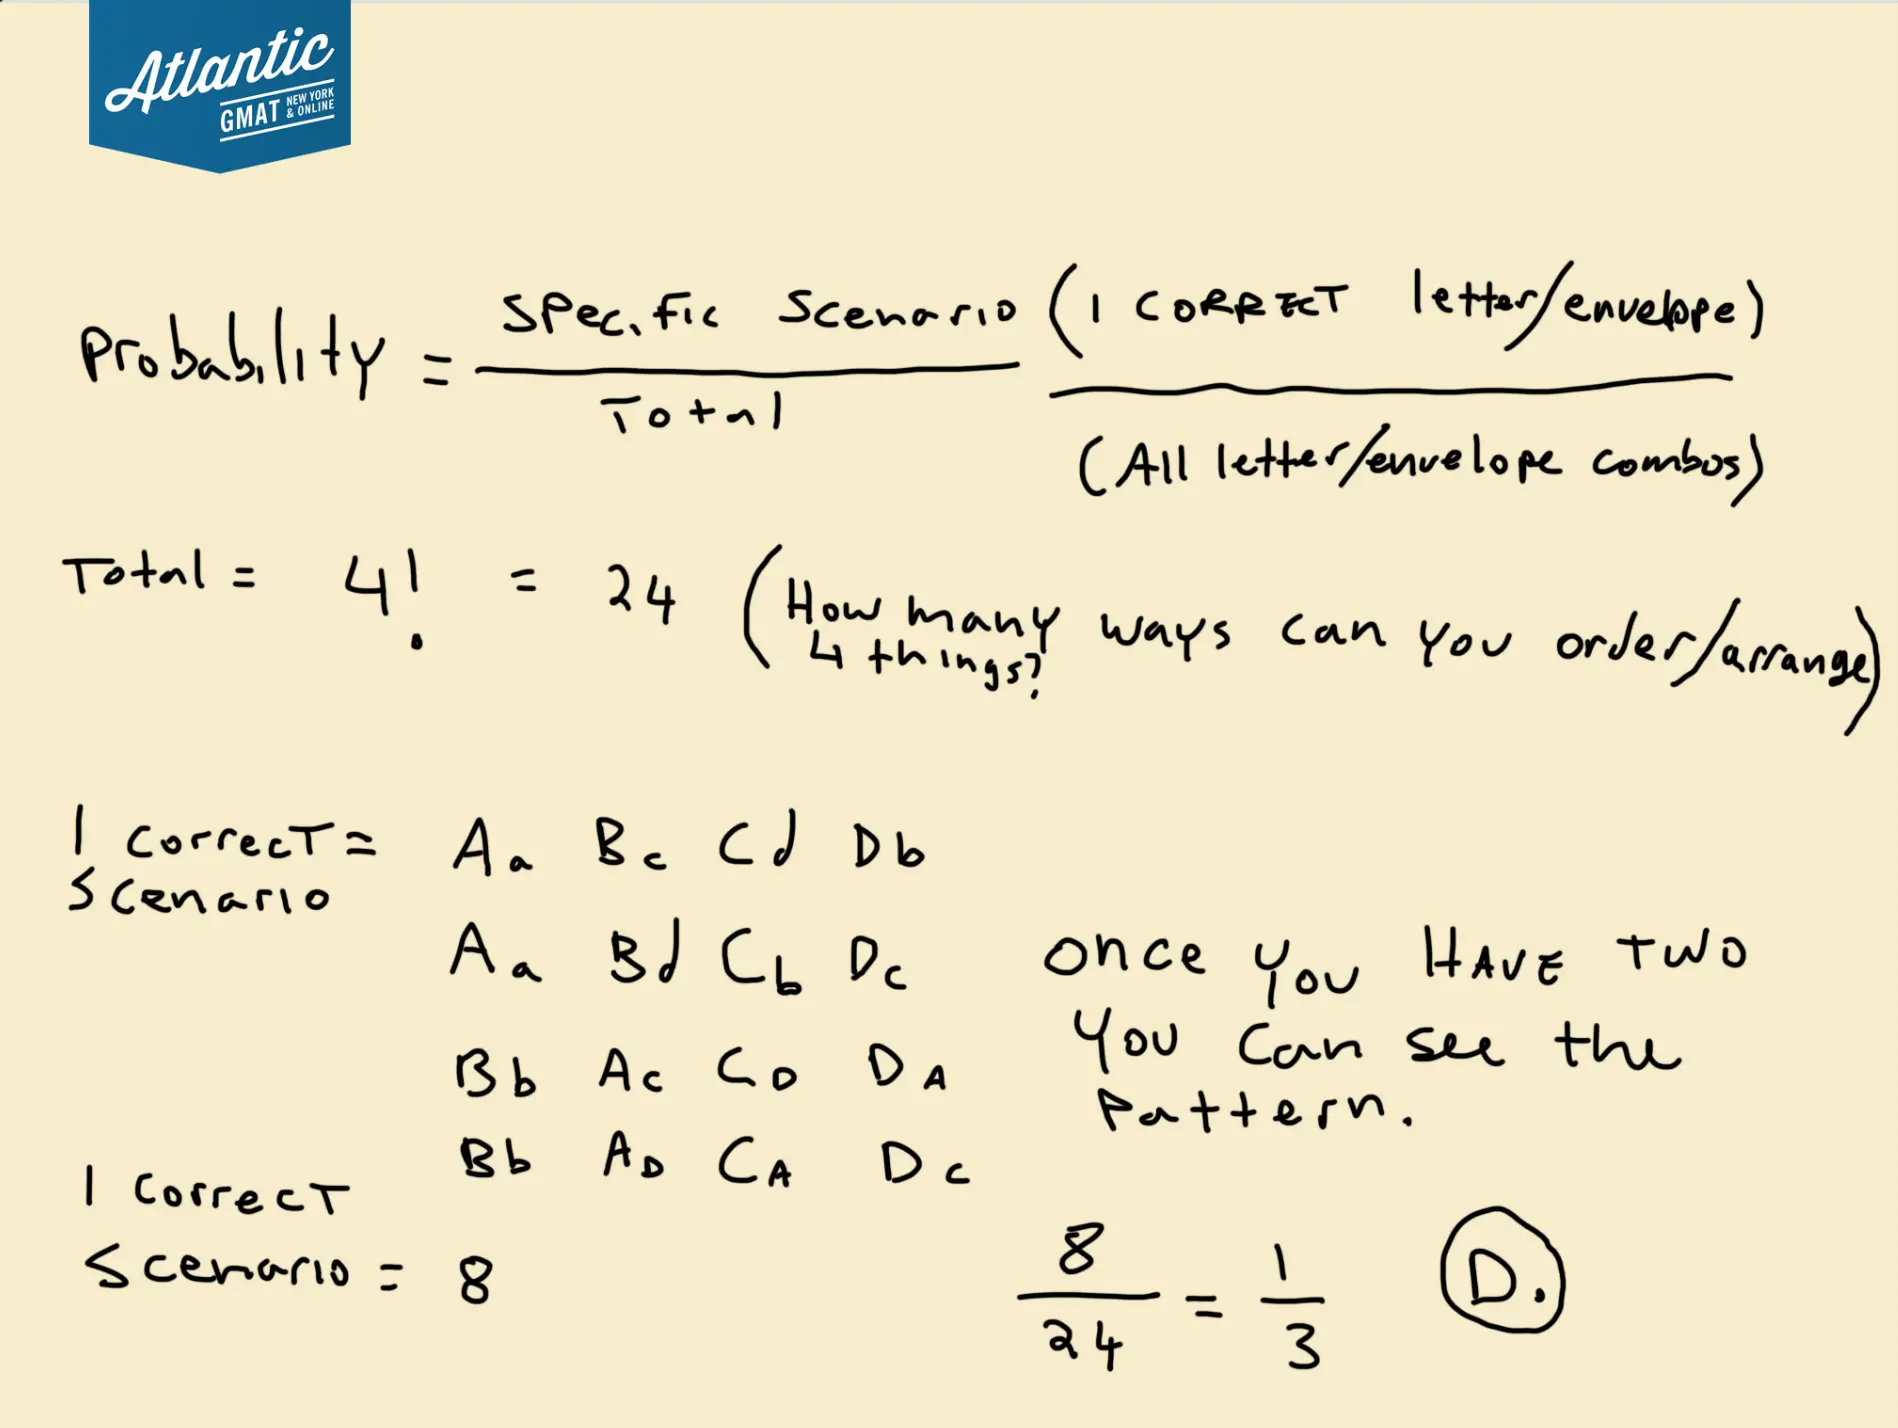 Atlantic
GMAT NEW YORK & ONLINE
Probability = Specific Scenario / Total (1 CORRECT letter/envelope) / (All letter/envelope combos)
Total = 4! = 24 (How many ways can you order/arrange
4 things?)
1 correcT = Aa Bc Cd Db
Scenario
Aa Bd Cb Dc
once you HAVE TWO
you can see the
Pattern.
Bb Ac CD DA
Bb AD CA Dc
1 correcT
Scenario = 8
8/24 = 1/3 D.